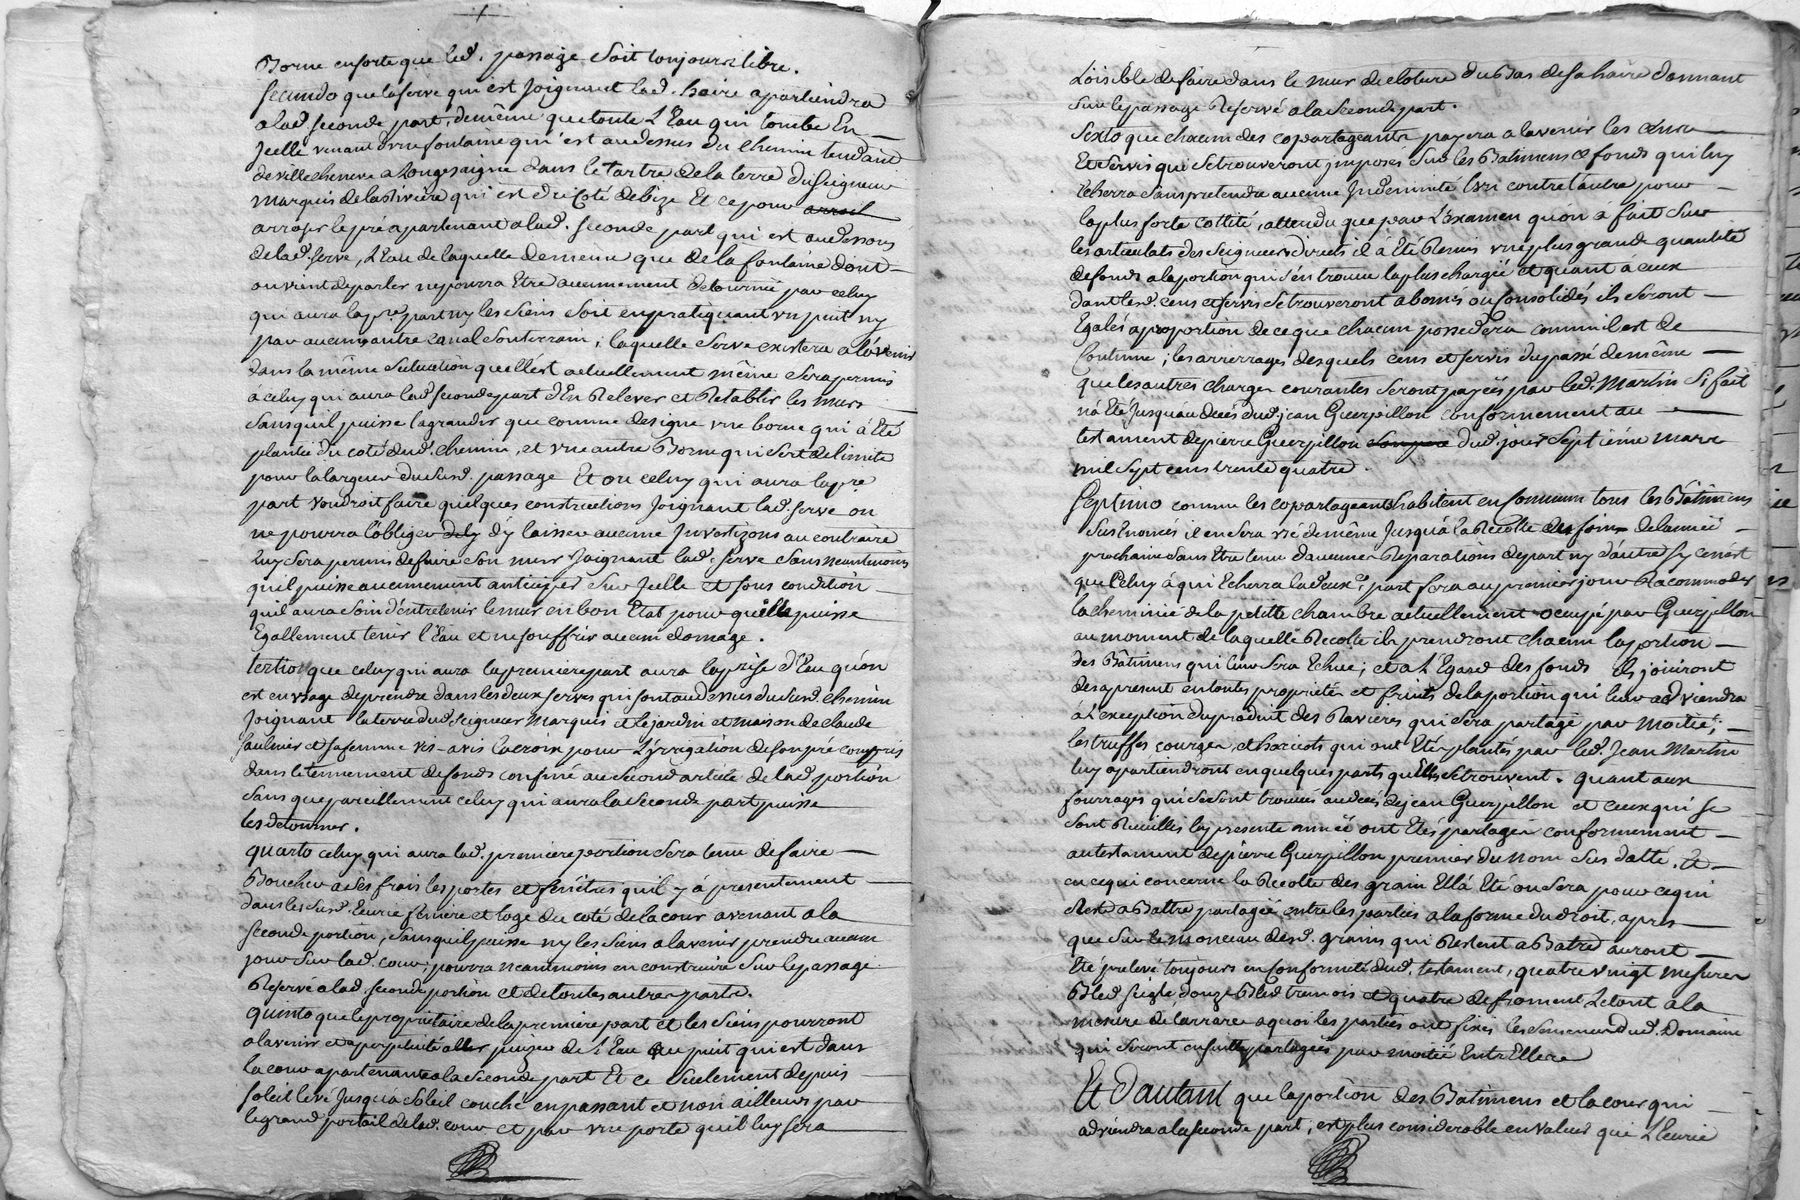 Borne ensorte que led. passage soit toujours libre.
Secundo que la serve qui est joignant lad. haire apartiendra
a lad. seconde part, de même que toute l'Eau qui tombe En
Jcelle venant d'vne fontaine qui est au dessus du chemin tendant
de villecheneve a Longesaigne dans le tartre de la terre du seigneur
marquis de la Riviere qui est du Coté de bize Et ce pour
arroser le pré apartenant a lad. seconde part qui est au dessous
de lad. serve, l'Eau de laquelle de même que de la fontaine dont
on vient de parler ne pourra Etre aucunement detournée par celuy
qui aura la pre. part ny les siens soit en pratiquant vn puit ny
par aucun autre canal souterrain ; laquelle serve existera a l'avenir
dans la même situation qu'elle est actuellement même sera permis
à celuy qui aura lad. seconde part d'En Relever et Retablir les murs
sans qu'il puisse l'agrandir que comme designe vne borne qui à Eté
plantée du coté dud. chemin, et vne autre Borne qui sert de limite
pour la largeur du susd. passage Et ou celuy qui aura la pre
part voudroit faire quelques constructions Joignant lad. serve on
ne pourra l'obliger d'y laisser aucune Jnvestizons au contraire
luy sera permis de faire son mur Joignant lad. serve sans neantmoins
qu'il puisse aucunement anticiper sur Jcelle Et sous condition
qu'il aura soin d'entretenir le mur en bon Etat pour qu'elle puisse
Egallement tenir l'Eau et ne souffrir aucun domage.
tertio que celuy qui aura la premiere part aura la prise d'Eau qu'on
est en vsage de prendre dans les deux serves qui sont au dessus du susd. chemin
Joignant la terre dud. seigneur Marquis et le jardin et maison de claude
saulnier et sa femme vis-avis la croix pour l'yrrigation de son pré compris
dans le tennement de fonds confiné au second article de lad. portion
sans que pareillement celuy qui aura la seconde part puisse
les detourner.
quarto celuy qui aura lad. premiere portion sera tenu de faire
Boucher a ses frais les portes et fenêtres qu'il y à presentement
dans les susd. Ecurie feniere et loge du coté de la cour avenant a la
seconde portion, sans qu'il puisse ny les siens a l'avenir prendre aucun
jour sur lad. cour, pourra neantmoins en construire sur le passage
Reservé a lad. seconde portion et de toutes autres parts.
quinto que le proprietaire de la premiere part et les siens pourront
a l'avenir et a perpetuité aller puizer de l'Eau au puit qui est dans
la cour apartenante a la seconde part Et ce seulement depuis
soleil levé jusqu'a soleil couché en passant et non ailleurs par
le grand portail de lad. cour et par vne porte qu'il luy sera
Loisible de faire dans le mur de cloture du Bas de sa haire donnant
sur le passage Reservé a la seconde part.
Sexto que chacun des copartageants payera a l'avenir les cens
Et servis qui se trouveront jmposés sur les Batimens & fonds qui luy
Echerra sans pretendre aucune Jndemnité l'vn contre l'autre pour
la plus forte cottité, attendu que par l'Examen qu'on à fait sur
les articulats des seigneurs directs il à Eté Remis vne plus grande quantité
de fonds a la portion qui s'en trouve la plus chargée et quant à ceux
dont lesd. cens et servis se trouveront abonnés ou consolidés ils seront
Egalés a proportion de ce que chacun possedera comm'il est de
Coutume ; les arrerrages desquels cens et servis du passé de même
que les autres charges courantes seront payées par led. Martin si fait
n'à Eté jusqu'au decés dud. jean Guerpillon conformement au
testament de pierre Guerpillon dud. jour septième mars
mil sept cens trente quatre.
Septimo comme les copartageants habitent en commun tous les Bâtimens
susnomés il en sera vsé de même jusqu'à la Recolte de l'année
prochaine sans Etre tenu d'aucunes Reparations de part ny d'autre sy ce n'est
que Celuy à qui Echerra lad. part sera au premier jour Racommoder
la cheminée de la petitte chambre actuellement occupé par Guerpillon
au moment de laquelle Recolte ils prendront chacun la portion
des Bâtimens qui leur sera Echue ; et a l'Egard des fonds ils joüiront
des apresent en toutes proprietés et fruits de la portion qui leur adviendra
à l'exception du produit des Ravieres qui sera partagé par moitié ;
les truffes courges, et haricots qui ont Eté plantés par led. Jean Martin
luy apartiendront en quelques parts qu'Elles se trouvent. quant aux
fourrages qui se sont trouvés au decés de jean Guerpillon et ceux qui se
sont Recuillis la presente année ont Etés partagés conformement
au testament de pierre Guerpillon premier du nom sus datté. Et
en ce qui concerne la Recolte des grains Ell'à Eté ou sera pour ce qui
Reste a Battre partagée entre les parties a la forme du droit, apres
que sur le monceau desd. grains qui Restent a Batre auront
Eté prelevé toujours en Conformité dud. testament, quatre vingt mesures
Bled seigle, douze Bled tremois et quatre de froment Le tout a la
mesure de larrare a quoi les parties ont fixés les semences dud. Domaine
qui seront ensuitte partagées par moitié Entr'Elles
Et D'autant que la portion des Batimens et la cour qui
adviendra a la seconde part, est plus considerable en valeur que l'Ecurie